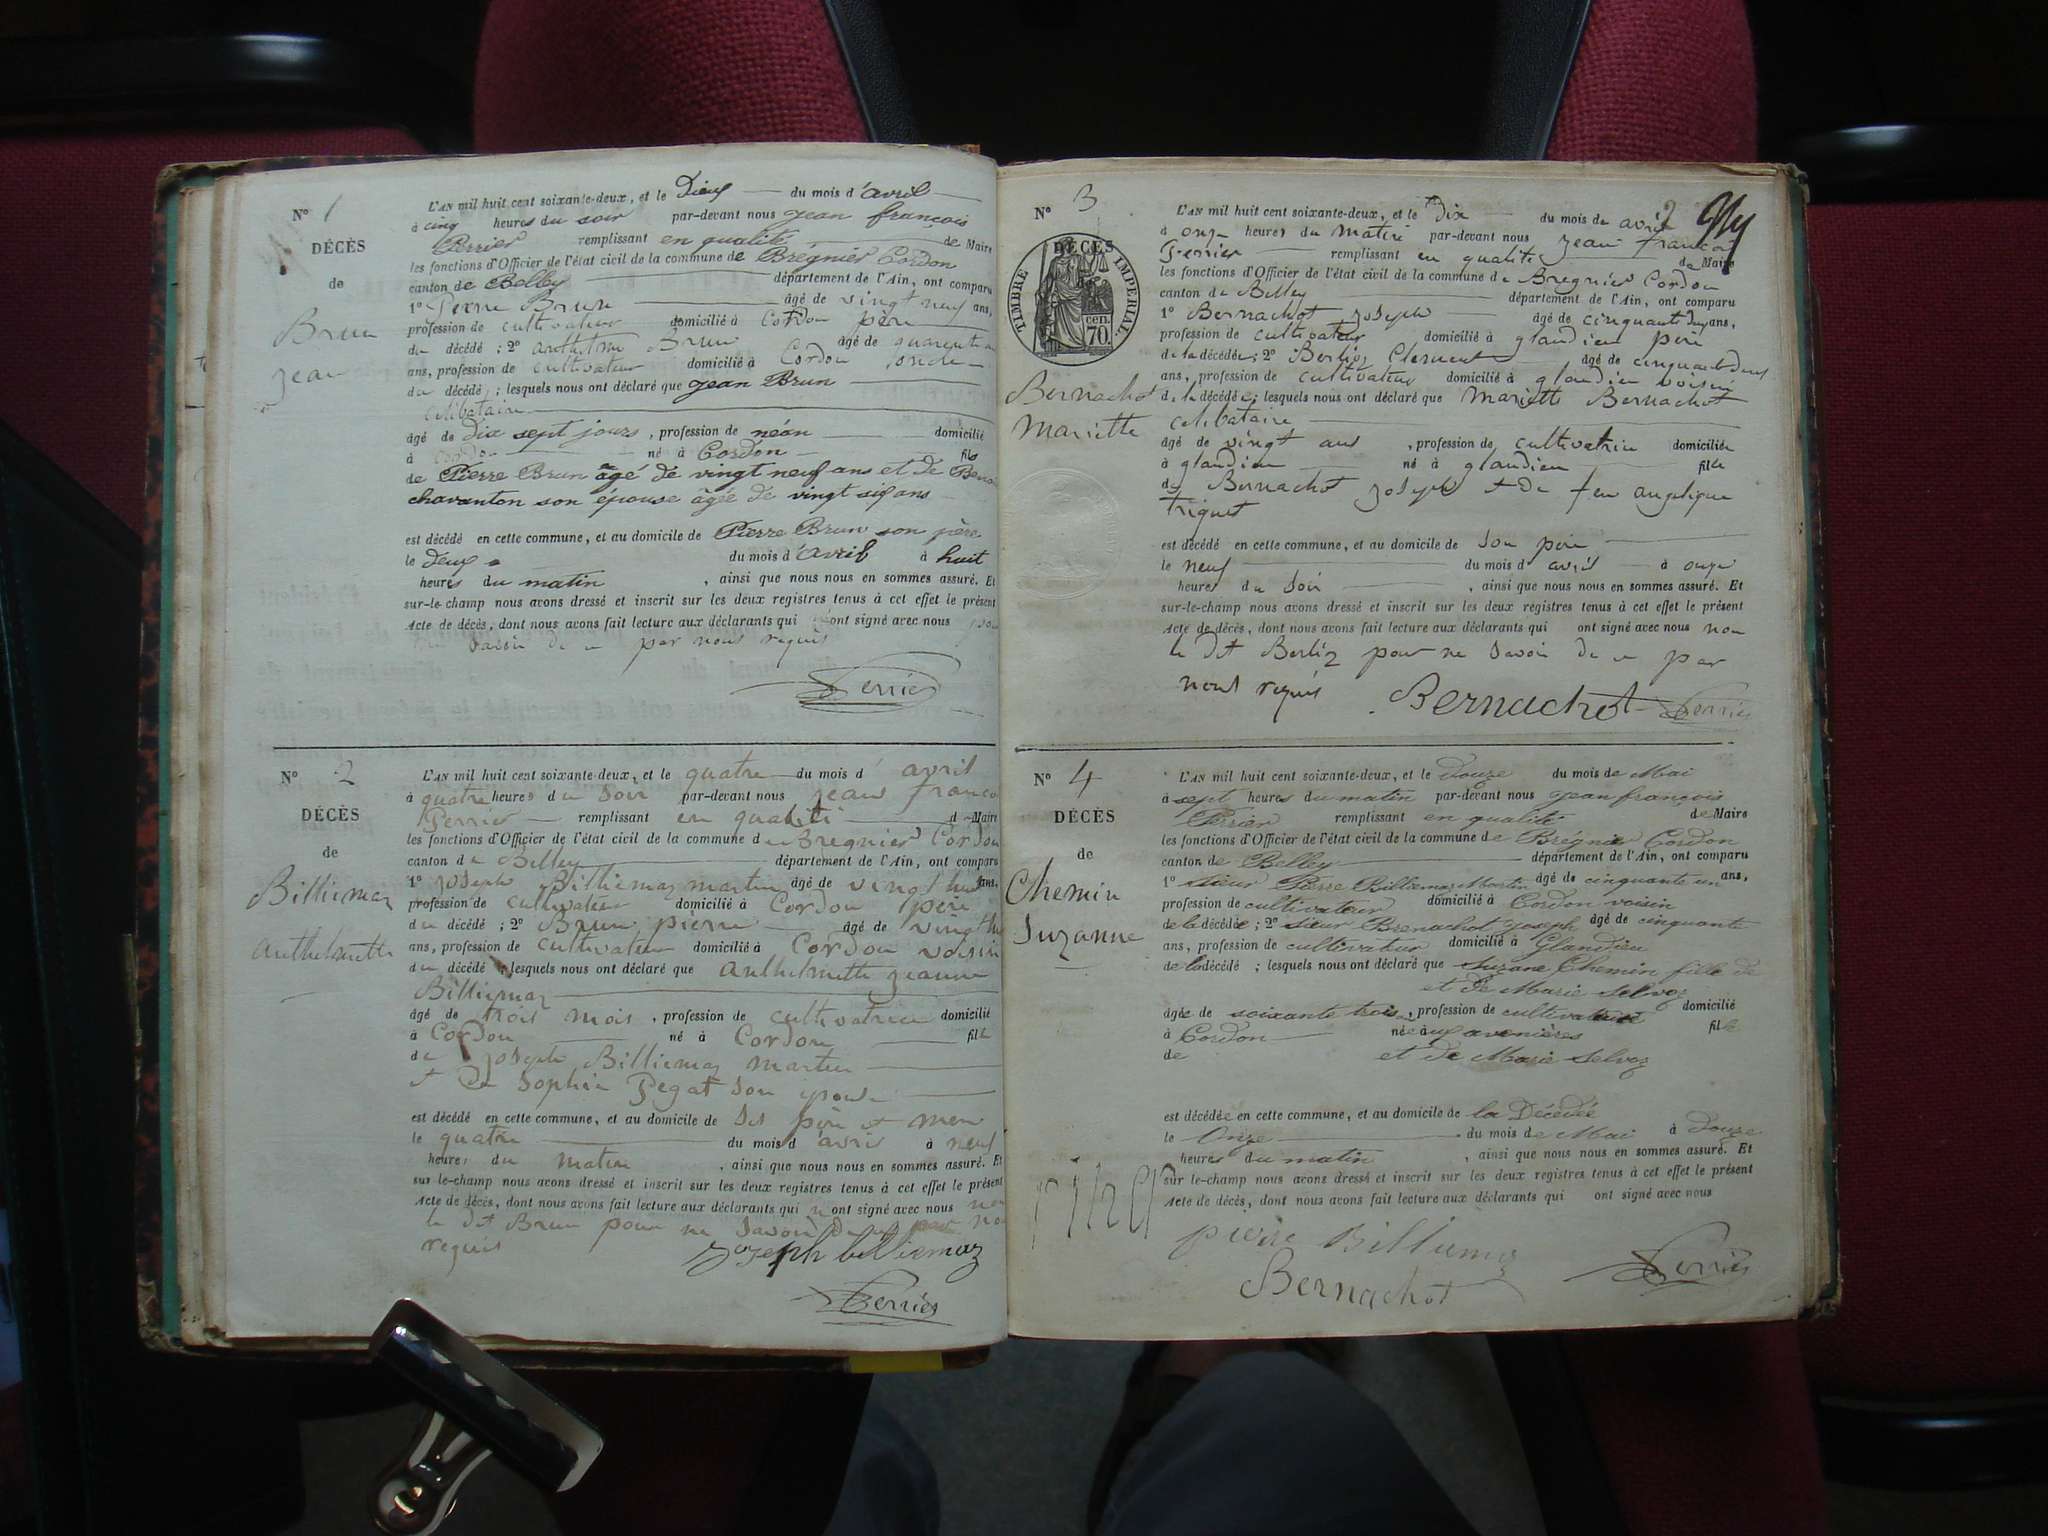 N° 1
DÉCÈS
de
Brun
jean
L'AN mil huit cent soixante-deux, et le Deux du mois d'avril
à cinq heures du soir par-devant nous jean françois
Perrier remplissant en qualité de Maire
les fonctions d'Officier de l'état civil de la commune de Brégnier Cordon
canton de Belley département de l'Ain, ont comparu
1° Pierre Brun âgé de vingt neuf ans,
profession de cultivateur domicilié à Cordon père
du décédé ; 2° anthelme Brun âgé de quarente
ans, profession de cultivateur domicilié à Cordon oncle
du décédé ; lesquels nous ont déclaré que jean Brun
celibataire
âgé de dix sept jours, profession de néan domicilié
à cordon né à Cordon fils
de Pierre Brun âgé de vingt neuf ans et de
chavanton son épouse âgée de vingt six ans
est décédé en cette commune, et au domicile de Pierre Brun son père
le deux du mois d'avril à huit
heures du matin, ainsi que nous nous en sommes assuré. Et
sur-le-champ nous avons dressé et inscrit sur les deux registres tenus à cet effet le présent
Acte de décès, dont nous avons fait lecture aux déclarants qui ont signé avec nous
savoir de ce par nous requis
Perrier
N° 2
DÉCÈS
de
Billiemaz
anthelmette
L'AN mil huit cent soixante-deux, et le quatre du mois d'avril
à quatre heures du soir par-devant nous jean franco
Perrier remplissant en qualité d Maire
les fonctions d'Officier de l'état civil de la commune de Bregnier Cordon
canton de Belley département de l'Ain, ont comparu
1° joseph Billiemaz martin âgé de vingt huit ans,
profession de cultivateur domicilié à Cordon père
du décédé ; 2° Brun pierre âgé de vingt
ans, profession de cultivateur domicilié à Cordon voisin
du décédé ; lesquels nous ont déclaré que anthelmette jeanne
Billiemaz
âgé de trois mois, profession de cultivatrice domicilié
à Cordon né à Cordon fille
de joseph Billiemaz martin
et de Sophie Pegat son epouse
est décédé en cette commune, et au domicile de ses père et mere
le quatre du mois d'avril à neuf
heures du matin, ainsi que nous nous en sommes assuré. Et
sur le-champ nous avons dressé et inscrit sur les deux registres tenus à cet effet le présent
Acte de décès, dont nous avons fait lecture aux déclarants qui ont signé avec nous non
le dt Brun pour ne savoir de ce par no
requis
joseph billiemaz
Perrier
N° 3
DÉCÈS
TIMBRE IMPERIAL.
cen.
70.
Bernachot
Mariette
2
L'AN mil huit cent soixante-deux, et le Dix du mois de avril
à onze heures du matin par-devant nous jean francois
Perrier remplissant en qualité de Maire
les fonctions d'Officier de l'état civil de la commune de Bregnier Cordon
canton de Belley département de l'Ain, ont comparu
1° Bernachot joseph âgé de cinquante deux ans,
profession de cultivateur domicilié à glandieu père
de la décédée ; 2° Berlioz Clement âgé de cinquante deux
ans, profession de cultivateur domicilié à glandieu voisin
de la décédée ; lesquels nous ont déclaré que Mariette Bernachot
celibataire
âgé de vingt ans, profession de cultivatrice domiciliée
à glandieu né à glandieu fille
de Bernachot joseph et de feu angelique
triquet
est décédé en cette commune, et au domicile de son père
le neuf du mois d avril à onze
heures du soir, ainsi que nous nous en sommes assuré. Et
sur-le-champ nous avons dressé et inscrit sur les deux registres tenus à cet effet le présent
Acte de décès, dont nous avons fait lecture aux déclarants qui ont signé avec nous non
le dt Berlioz pour ne savoir de ce par
nous requis
Bernachot Perrier
N° 4
DÉCÈS
de
Chemin
Suzanne
L'AN mil huit cent soixante-deux, et le douze du mois de Mai
à sept heures du matin par-devant nous jean françois
Perrier remplissant en qualité de Maire
les fonctions d'Officier de l'état civil de la commune de Brégnier Cordon
canton de Belley département de l'Ain, ont comparu
1° sieur Pierre Billiemaz Martin âgé de cinquante un ans,
profession de cultivateur domicilié à Cordon voisin
de la décédée ; 2° sieur Brenachot joseph âgé de cinquante
ans, profession de cultivateur domicilié à Glandieu
de la décédé ; lesquels nous ont déclaré que suzane Chemin fille de
et de Marie Selvoz
âgée de soixante trois, profession de domicilié
à Cordon née aux avenières fille
de et de Marie Selvoz
est décédée en cette commune, et au domicile de la Décédée
le Onze du mois de Mai à douze
heures du matin, ainsi que nous nous en sommes assuré. Et
sur le-champ nous avons dressé et inscrit sur les deux registres tenus à cet effet le présent
Acte de décès, dont nous avons fait lecture aux déclarants qui ont signé avec nous
pierre Billiemaz
Bernachot Perrier